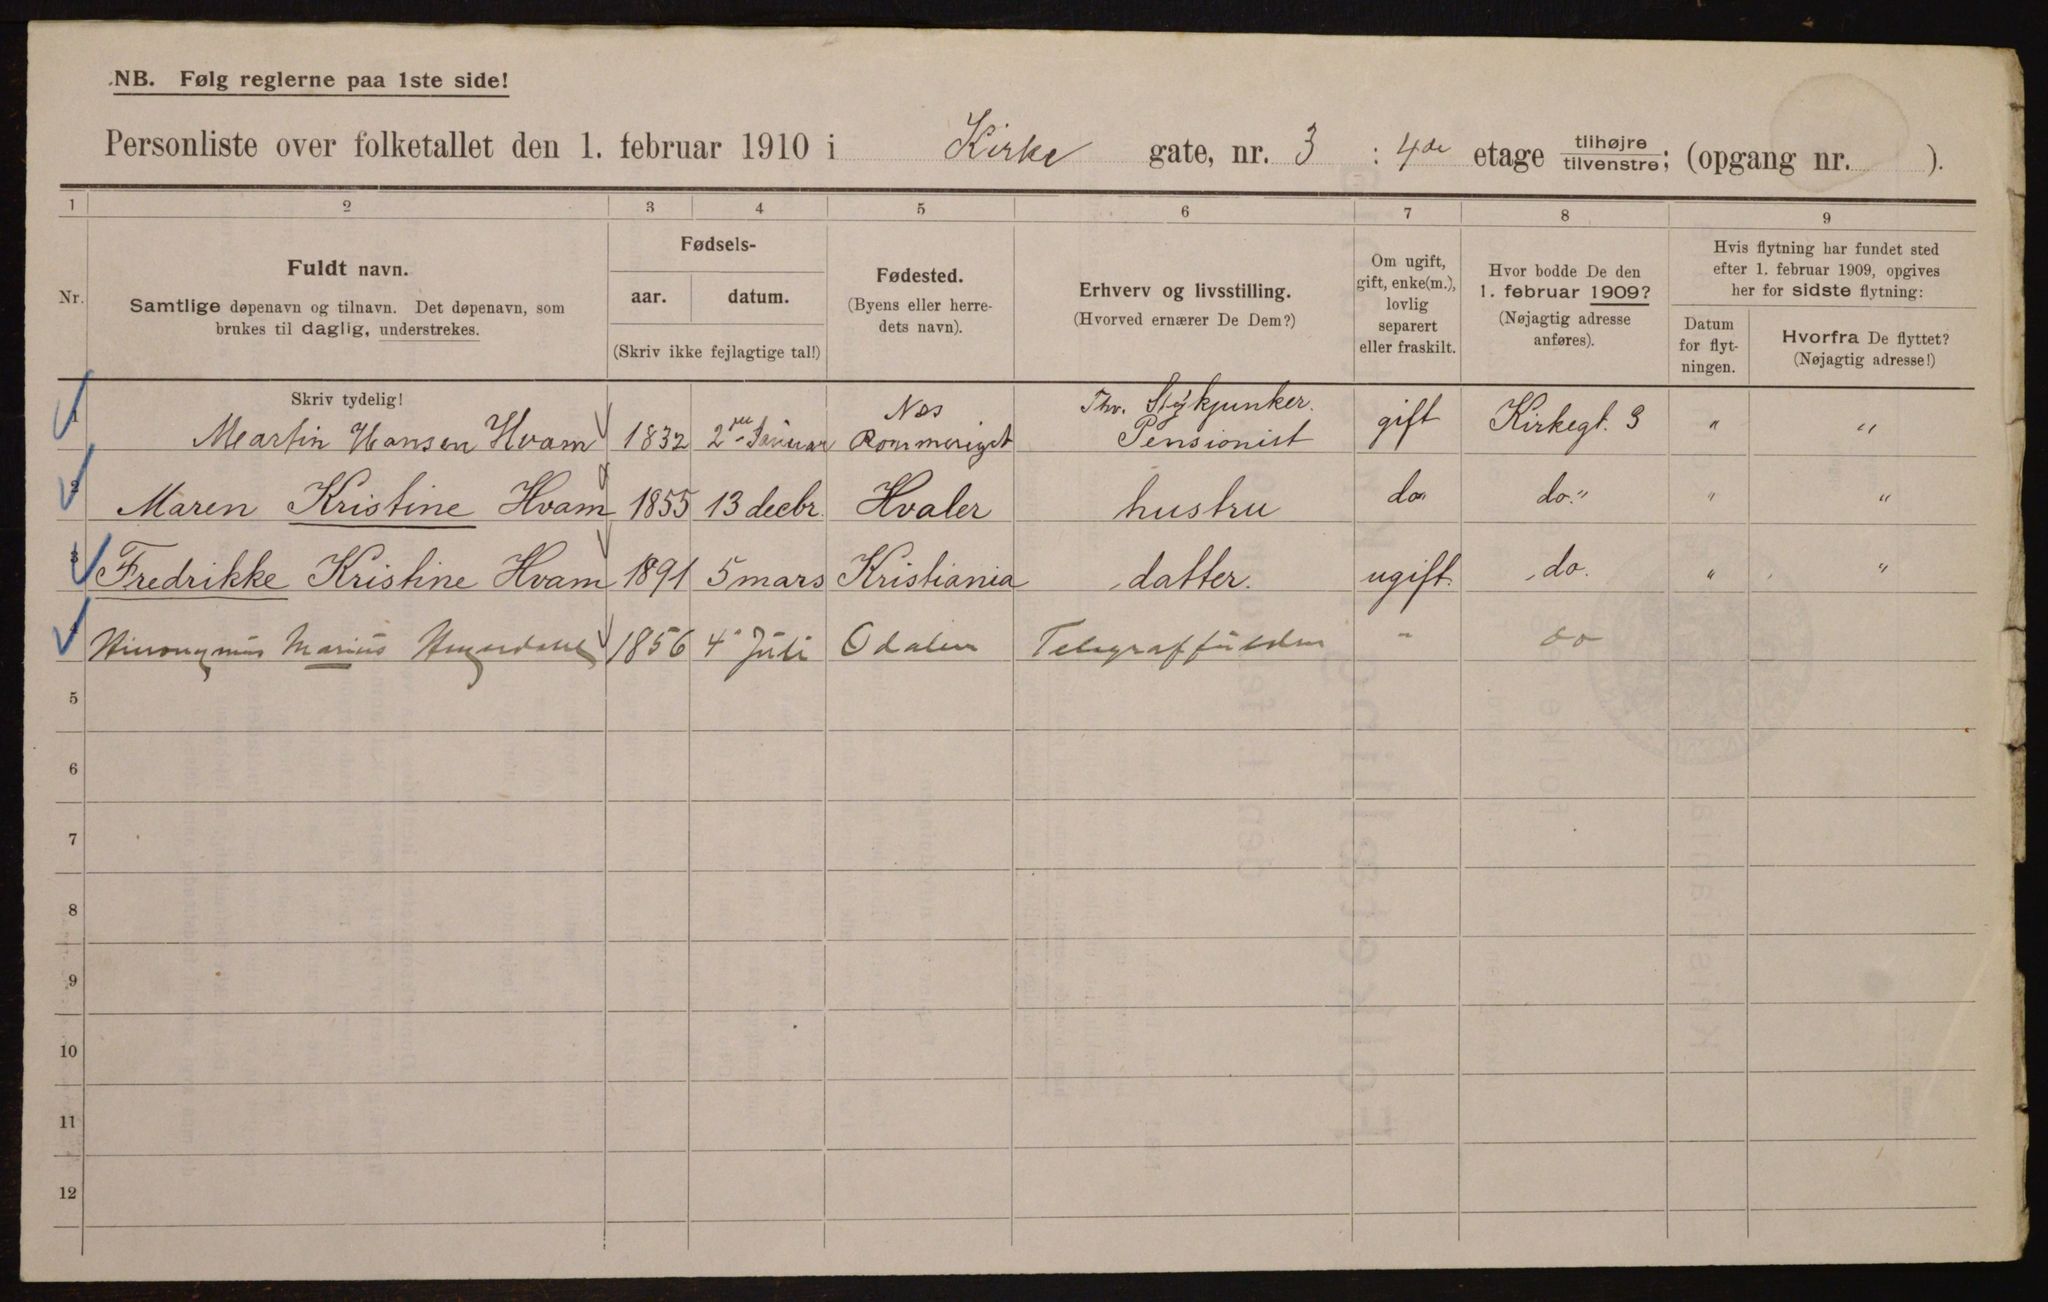 NB. Følg reglerne paa 1ste side!
Personliste over folketallet den 1. februar 1910 i Kirke gate, nr. 3 : 4de etage tilhøjre / tilvenstre; (opgang nr. ).
1 2 3 4 5 6 7 8 9
Nr.
Fuldt navn.
Samtlige døpenavn og tilnavn. Det døpenavn, som
brukes til daglig, understrekes.
Fødsels-
aar. datum.
(Skriv ikke fejlagtige tal!)
Fødested.
(Byens eller herre-
dets navn).
Erhverv og livsstilling.
(Hvorved ernærer De Dem?)
Om ugift,
gift, enke(m.),
lovlig
separert
eller fraskilt.
Hvor bodde De den
1. februar 1909?
(Nøjagtig adresse
anføres).
Hvis flytning har fundet sted
efter 1. februar 1909, opgives
her for sidste flytning:
Datum
for flyt-
ningen.
Hvorfra De flyttet?
(Nøjagtig adresse!)
Skriv tydelig!
1 Martin Hansen Hvam 1832 2 Januar Næs Rommeriget Stykjunker. Pensionist gift Kirkegt. 3 " "
2 Maren Kristine Hvam 1855 13 decbr. Hvaler hustru do" do." " "
3 Fredrikke Kristine Hvam 1891 5 mars Kristiania datter. ugift. do. " "
4 Marius 1856 4 Juli Odalen " do
5
6
7
8
9
10
11
12